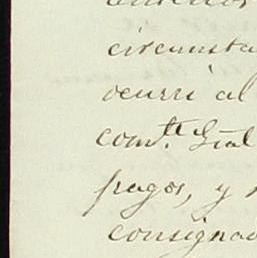 anterior
circunsta
ocurri al
com.te Gral
pagos, y
consignad